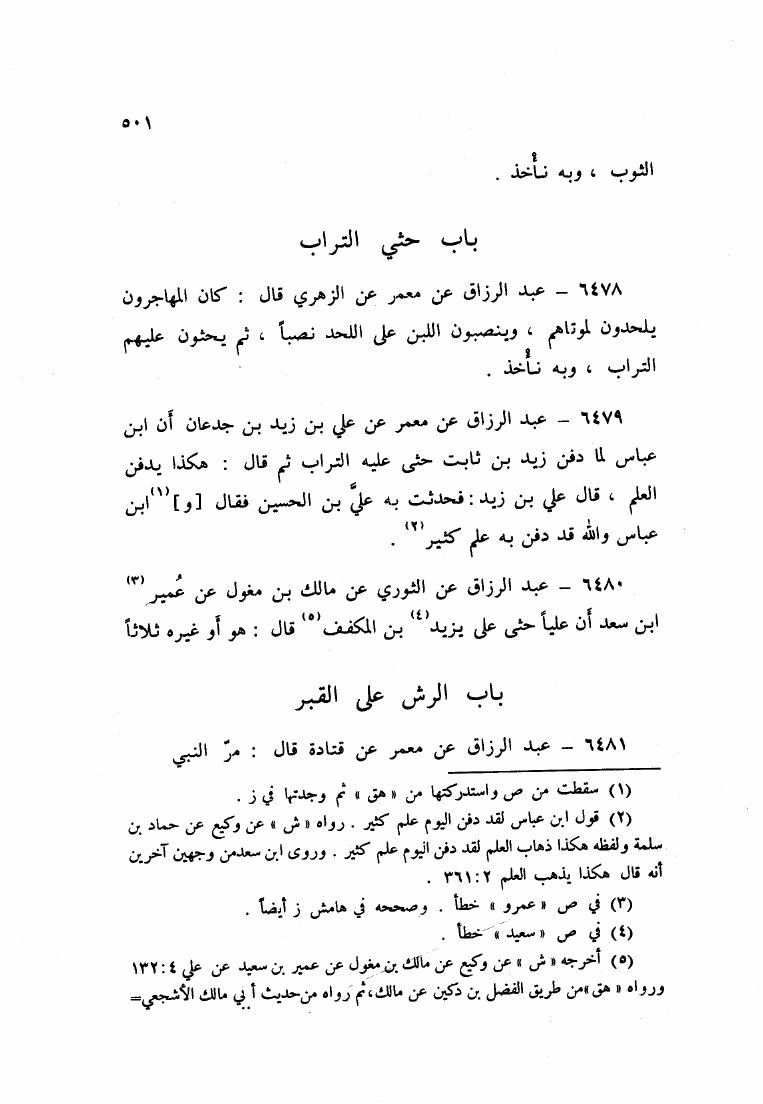 ٥٠١
الثوب ، وبه نأْخذ .
باب حثي التراب
٦٤٧٨ – عبد الرزاق عن معمر عن الزهري قال : كان المهاجرون
يلحدون لموتاهم ، وينصبون اللبن على اللحد نصباً ، ثم يحثون عليهم
التراب ، وبه نأْخذ .
٦٤٧٩ – عبد الرزاق عن معمر عن علي بن زيد بن جدعان أن ابن
عباس لما دفن زيد بن ثابت حثى عليه التراب ثم قال : هكذا يدفن
العلم ، قال علي بن زيد : فحدثت به عليَّ بن الحسين فقال [و](١)ابن
عباس والله قد دفن به علم كثير(٢) .
٦٤٨٠ – عبد الرزاق عن الثوري عن مالك بن مغول عن عُمير(٣)
ابن سعد أن علياً حثى على يزيد(٤) بن المكفف(٥) قال : هو أو غيره ثلاثاً
باب الرش على القبر
٦٤٨١ – عبد الرزاق عن معمر عن قتادة قال : مرّ النبي
(١) سقطت من ص واستدركتها من « هق » ثم وجدتها في ز .
(٢) قول ابن عباس لقد دفن اليوم علم كثير . رواه « ش » عن وكيع عن حماد بن
سلمة ولفظه هكذا ذهاب العلم لقد دفن اليوم علم كثير . وروى ابن سعدمن وجهين آخرين
أنه قال هكذا يذهب العلم ٢ : ٣٦١ .
(٣) في ص « عمرو » خطأ . وصححه في هامش ز أيضاً .
(٤) في ص « سعيد » خطأ .
(٥) أخرجه « ش » عن وكيع عن مالك بن مغول عن عمير بن سعيد عن علي ٤ : ١٣٢
ورواه « هق »من طريق الفضل بن دكين عن مالك، ثم رواه من حديث أبي مالك الأشجعي=